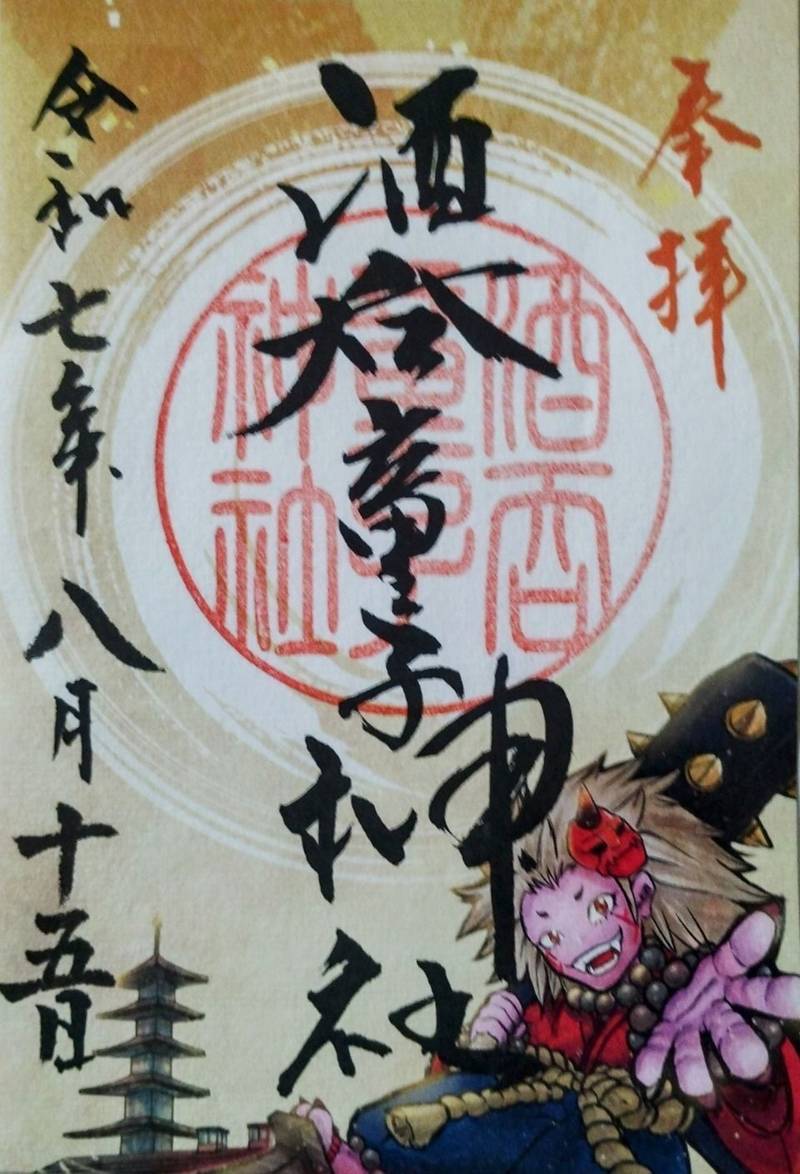 奉拝
酒呑童子神社
酒呑
童子
神社
令和七年八月十五日